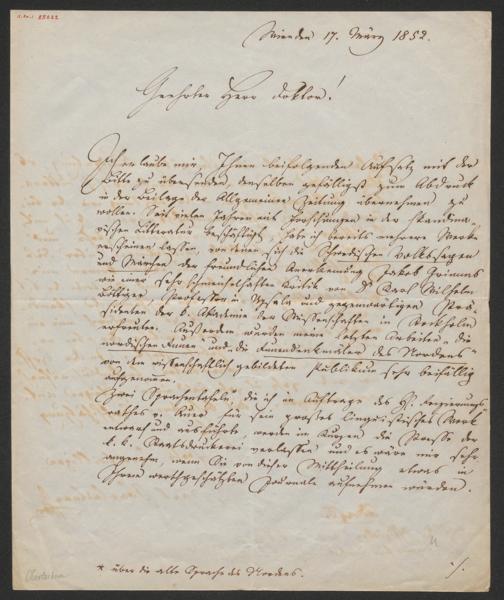 Wien den 17. März 1852.
Geehrter Herr Doktor!
Ich erlaube mir, Ihnen beifolgenden Aufsatz mit der
Bitte zu übersenden denselben gefälligst zum Abdruck
in der Beilage der Allgemeinen Zeitung übernehmen zu
wollen. Seit vielen Jahren mit Forschungen in der skandina-
vischen Literatur beschäftigt, habe ich bereits mehrere Werke
erscheinen lassen, von denen sich die Schwedischen Volkssagen
und Märchen der freundlichen Anerkennung Jakob Grimms
wie einer sehr schmeichelhaften Kritik von Dr Karl Wilhelm
Böttiger, Professor in Upsala und gegenwärtigen Prä-
sidenten der k. Akademie der Wissenschaften in Stockholm
erfreuten. Außerdem wurden meine letzten Arbeiten „die
nordischen Runen" und „die Runendenkmäler des Nordens"
von dem wissenschaftlich gebildeten Publikum sehr beifällig
aufgenommen.
Zwei Sprachentafeln*, die ich im Auftrage des H. Regierungs
rathes v. Auer für sein großes linguistisches Werk
entwarf und ausführte, werden in Kurzem die Presse der
k. k. Staatsdruckerei verlassen und es wäre mir sehr
angenehm, wenn Sie von dieser Mittheilung etwas in
Ihrem werthgeschätzten Journale aufnehmen würden.
* über die alte Sprache des Nordens.